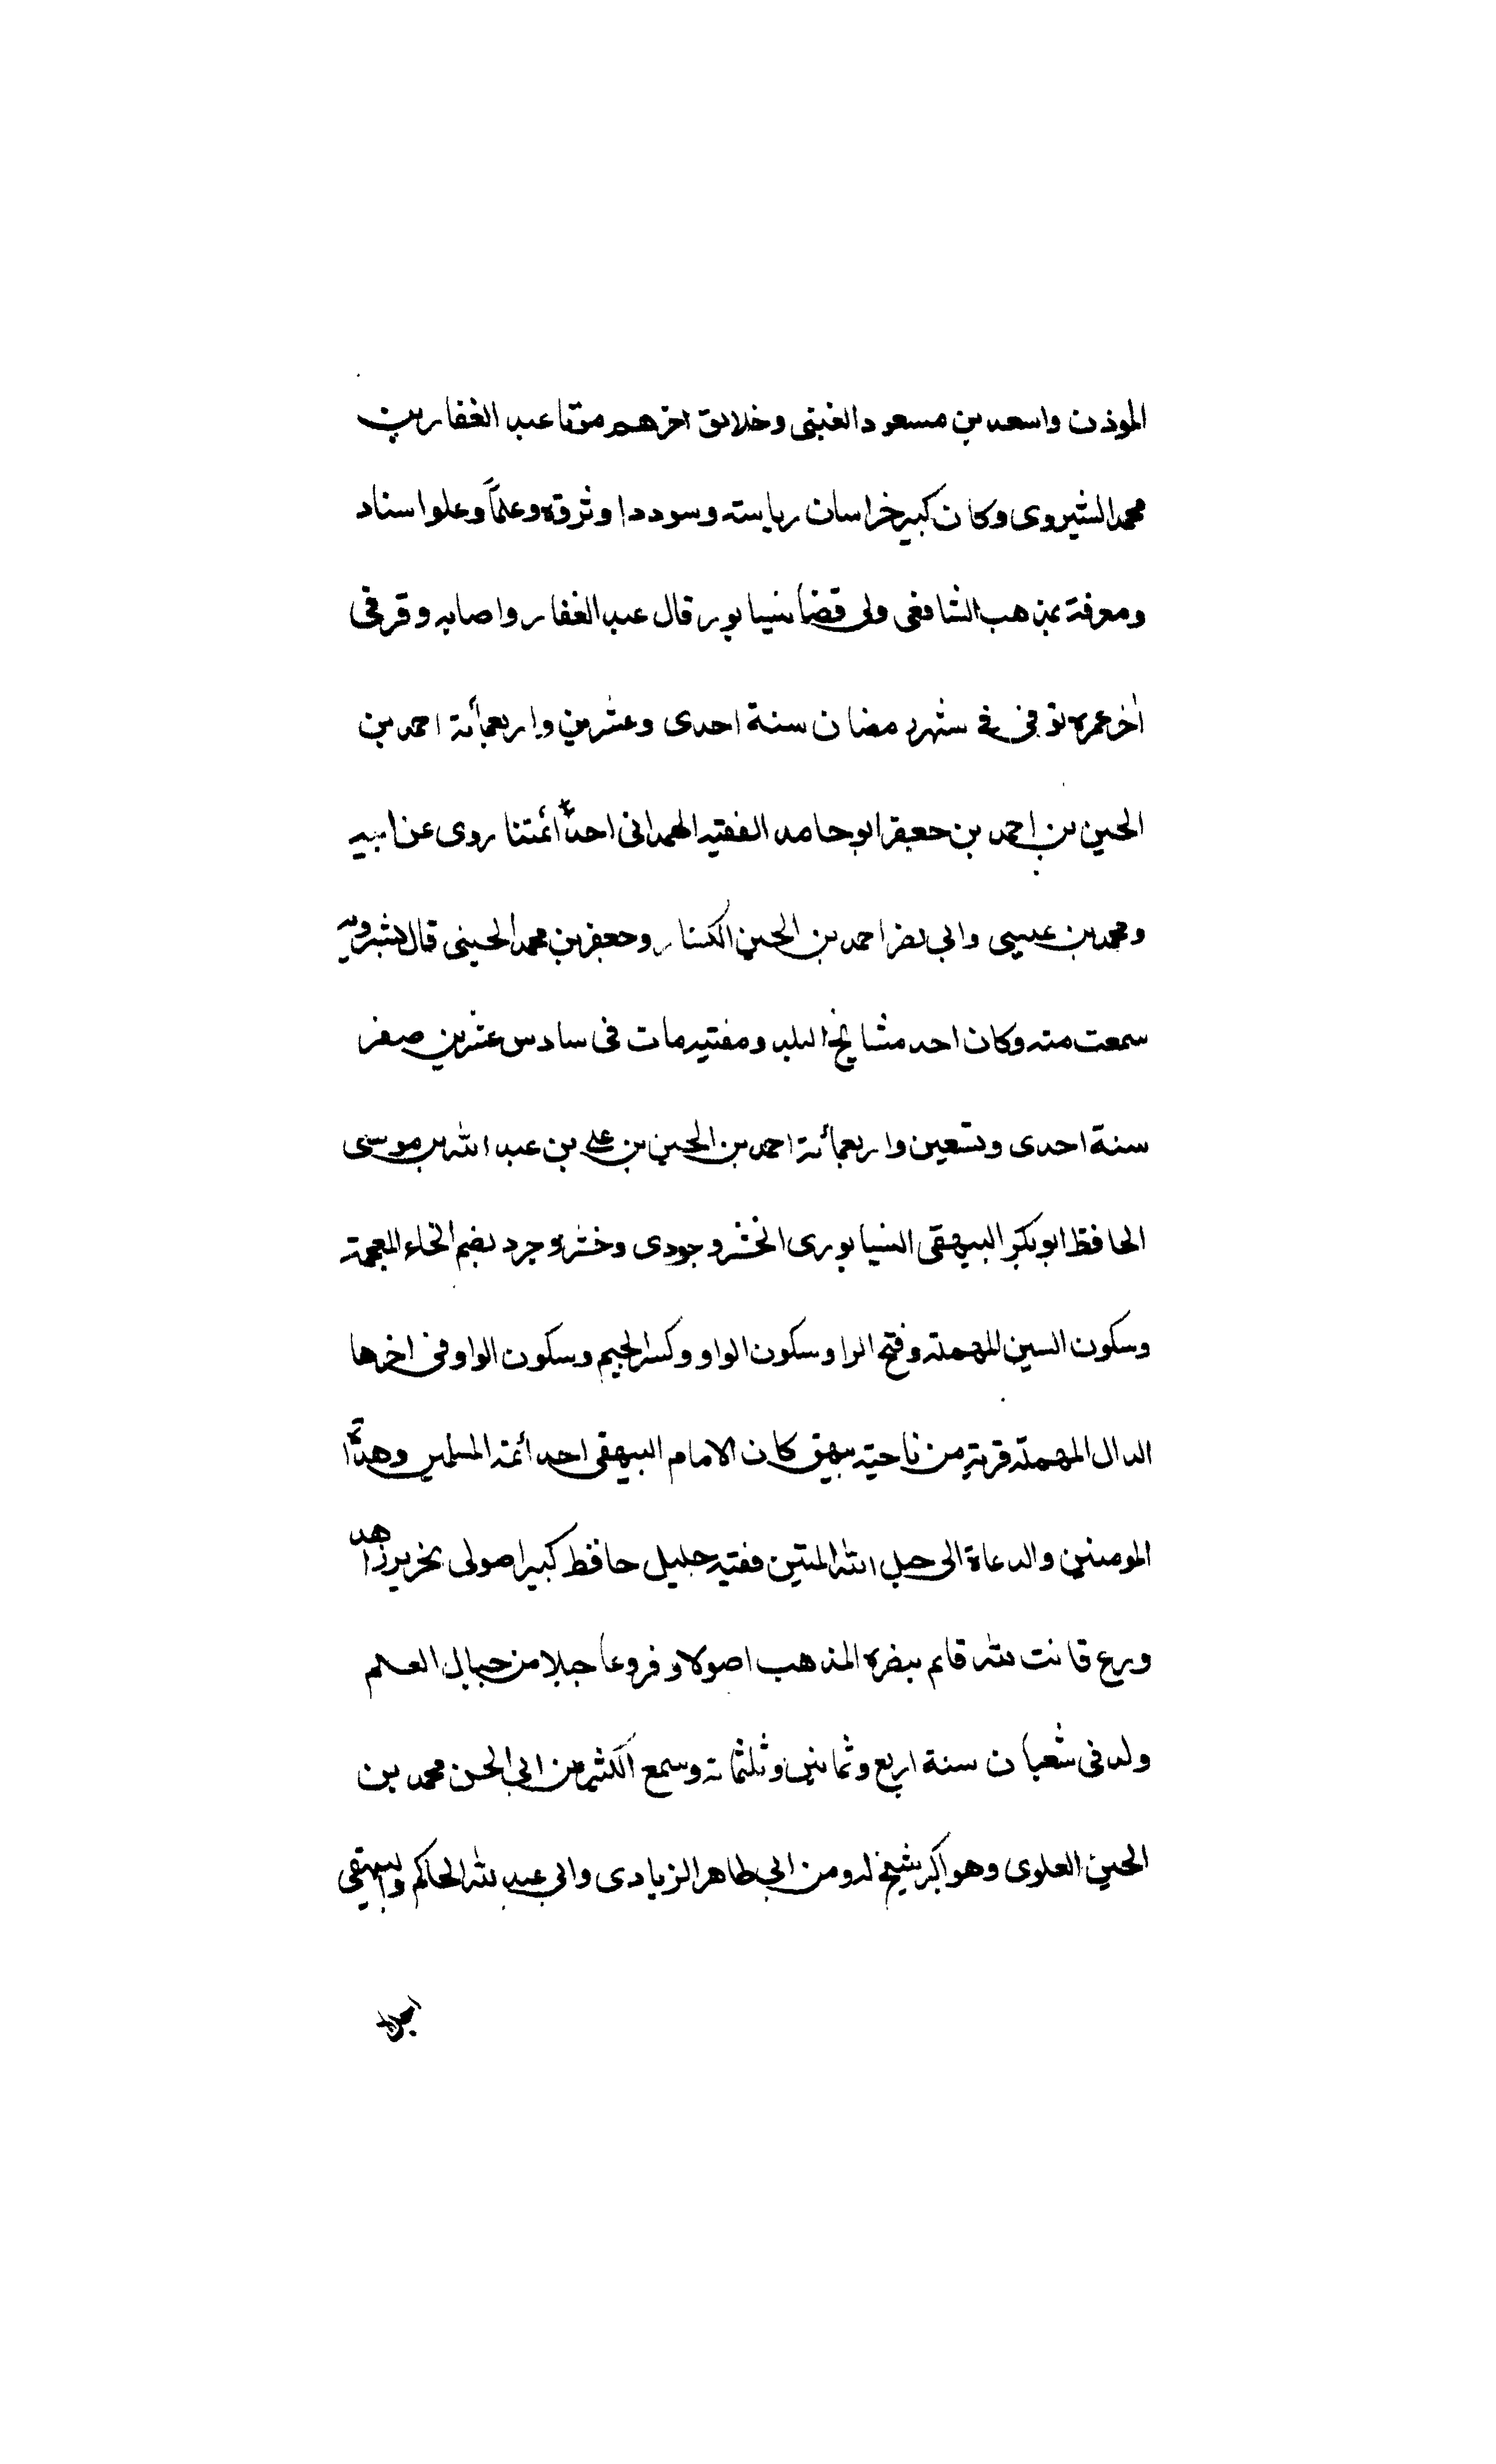 الموذن واسعد بن مسعود العتبى وخلايق اخرهم موتا عبد الغفار بن
محمد الشيروى وكان كبير خراسان رياسته وسوددا وثروة وعلماً وعلو اسناد
ومعرفة بمذهب الشافعى ولى قضا نيسابور قال عبد الغفار واصابه وقر فى
اخر عمره توفى فى شهر رمضان سنة احدى وعشرين واربعمائة احمد بن
الحسين بن احمد بن جعفر ابو حامد الفقيه الهمدانى احد ائمتنا روى عن ابيه
ومحمد بن عيسى وابى نصر احمد بن الحسين الكسار وجعفر بن محمد الحسينى قال شيرويه
سمعت منه وكان احد مشايخ البلد ومفتيه مات فى سادس عشرين صفر
سنة احدى وتسعين واربعمائة احمد بن الحسين بن على بن عبد الله بن موسى
الحافظ ابو بكر البيهقى النيسابورى الخشروجودى وخشروجرد بضم الخاء المعجمة
وسكون السين المهملة وفتح الرا وسكون الواو وكسر الجيم وسكون الواو فى اخرها
الدال المهملة قرية من ناحية بيهق كان الامام البيهقى احد أئمة المسلمين وهداة
المومنين والدعاة الى حبل الله المتين فقيه جليل حافظ كبير اصولى نحرير زاهد
ورع قانت لله قايم بنصرة المذهب اصولا وفروعا جبلا من جبال العلم
ولد فى شعبان سنة اربع وثمانين وثلثمائة وسمع الكثير من ابى الحسن محمد بن
الحسين العلوى وهو اكبر شيخ له ومن ابى طاهر الزيادى وابى عبد الله الحاكم والبيهقى